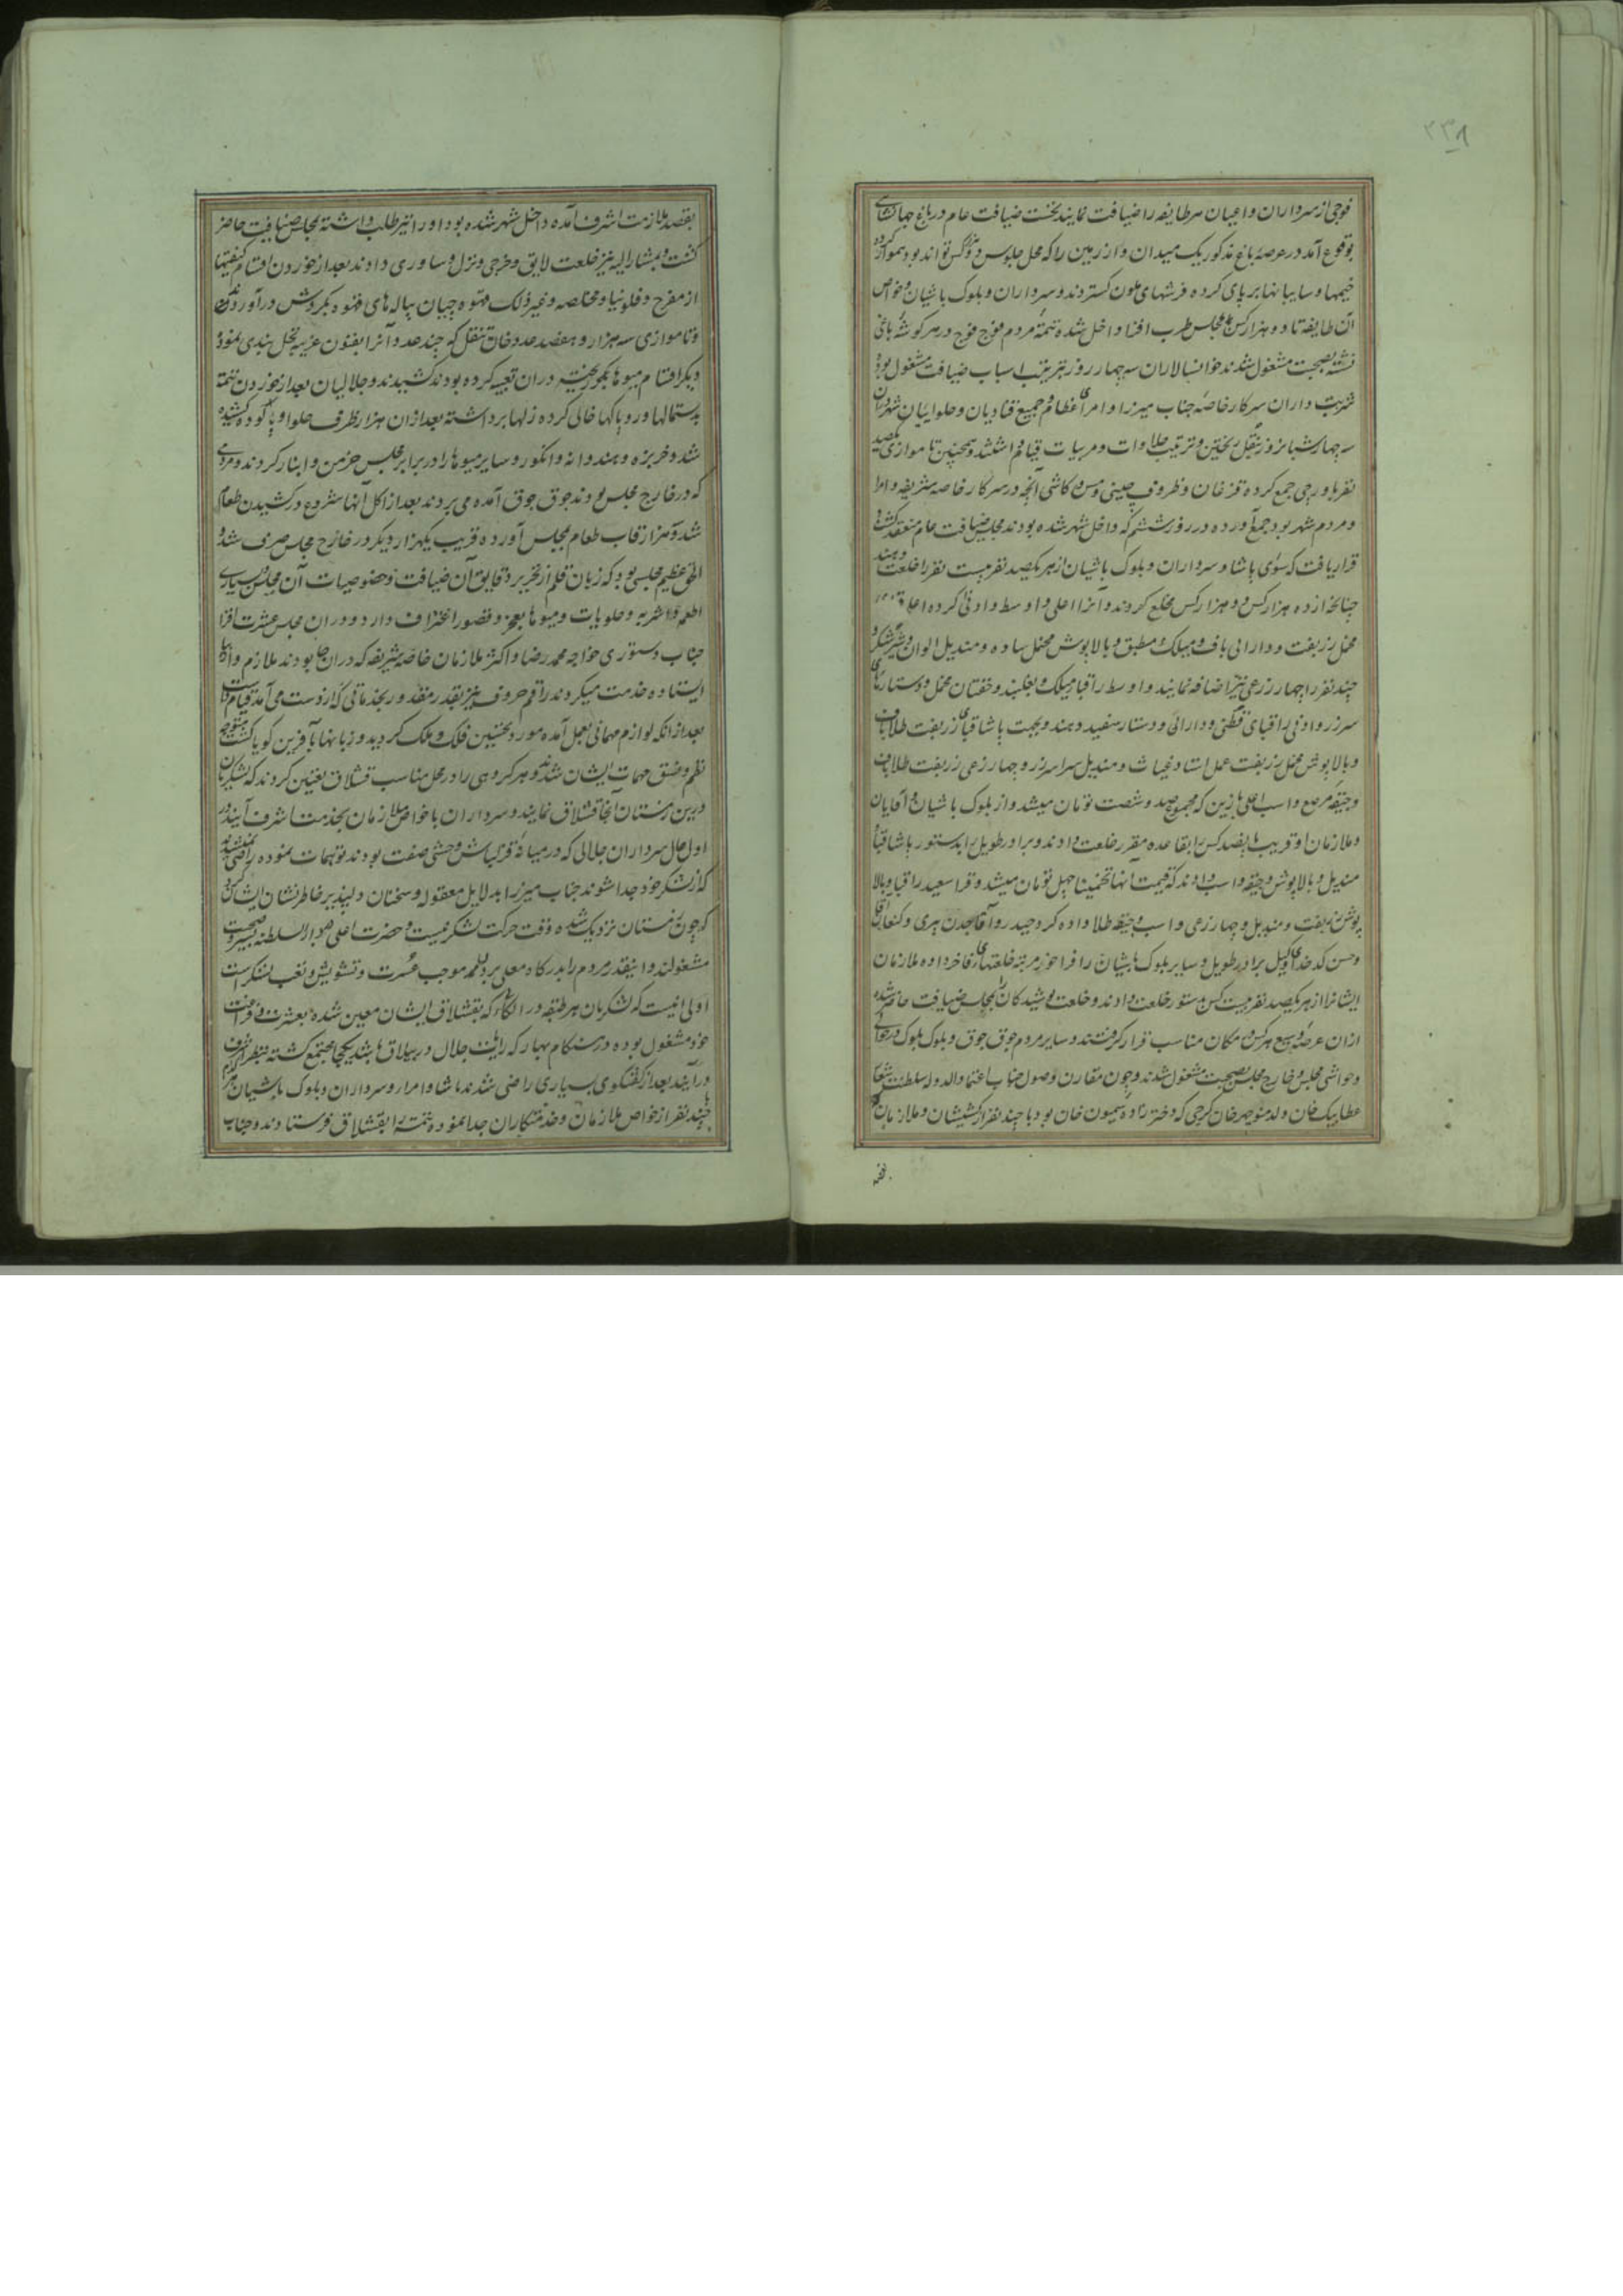 ۲۳۸
فوجی از سرداران و اعیان هر طایفه را ضیافت نمایند نخست ضیافت عام در باغ جهانشاهی
بوقوع آمد در عرصهٔ باغ مذکور یک میدان وار زمین را که محل جلوس دو هزار کس تواند بود هموار کرده
خیمها و سایبانها برپای کرده فرشهای ملون کستردند و سرداران و بلوک باشیان و خواص
آن طایفه تا دو هزار کس مجلس طرب افتا داخل شده تتمهٔ مردم فوج فوج در هر کوشهٔ باغی
نشسته بصحبت مشغول شدند خوانسالاران سه چهار روز بترتیب اسباب ضیافت مشغول بوده
شربت داران سرکار خاصه جناب میرزا و امرای عظام و جمیع قنادیان و حلواییان شهر در آن
سه چهار شبانروز بنقل ریختن و ترتیب حلاوات و مربیات قیام داشتند و همچنین تا موازی یکصد
نفر باورچی جمع کرده قزغان و ظروف چینی و مس و کاشی آنچه در سرکار خاصه شریفه و امرا
و مردم شهر بود جمع آورده در روز ششم که داخل شهر شده بودند مجلس ضیافت عام منعقد کشت
قرار یافت که سوای پاشا و سرداران و بلوک باشیان از هر یکصد نفر بیست نفر را خلعت دهند
چنانچه از ده هزار کس دو هزار کس مخلع کردند و آنرا اعلی و اوسط و ادنی کرده اعلا قبای
مخمل زربفت و دارائی باف و میلک و مطبق و بالاپوش مخمل ساده و مندیل الوان و
چند نفر را چهار زرعی نیز اضافه نمایند و اوسط را قبا میلک و بغلبند و خفتان مخمل و دستارهای
سرزر و ادنی را قبای قطنی و دارائی و دستار سفید دهند و بجهت پاشا قبای زربفت طلاباف
و بالاپوش مخمل زربفت عمل استاد غیاث و مندیل سراسر زر و چهار زرعی زربفت طلاباف
و جیقه مرصع و اسب اعلی با زین که مجموع صد و شصت تومان میشد و از بلوک باشیان و آقایان
و ملازمان او قریب پانصد کس را بقاعده مقرر خلعت دادند و برادر طویل را بدستور پاشا قبا و
مندیل و بالاپوش و جیقه و اسب دادند که قیمت آنها تخمینا چهل تومان میشد و قرا سعید را قبا و بالا
پوش زربفت و مندیل و چهار زرعی و اسب و جیقه طلا داده کرد حیدر و آقاجدن پیری و کنعان آقا
و حسن کدخدای وکیل برادر طویل و سایر بلوک باشیان را فراخور مرتبه خلعتهای فاخر داده ملازمان
ایشانرا از هر یکصد نفر بیست کس بدستور خلعت دادند و خلعت پوشیدکان بمجلس ضیافت حاضر شده
از ان عرصهٔ وسیع هر کس در مکان مناسب قرار کرفتند و سایر مردم جوق جوق و بلوک بلوک در حوالی
و حواشی مجلس و خارج مجلس بصحبت مشغول شدند و چون مقارن وصول جناب اعتماد الدوله سلطنت شعار
عطا بیک خان ولد منوچهر خان کرجی که دختر زاده سیمون خان بود با چند نفر از کشیشان و ملازمان
بقصد
بقصد ملازمت اشرف آمده داخل شهر شده بود او را نیز طلب داشته بمجلس ضیافت حاضر
کشت و مشار الیه نیز خلعت لایق و خرجی و نزل و ساوری دادند بعد از خوردن اقسام کیفیتها
از مفرح و فلونیا و مخاصه و غیر ذلک قهوه چیان پیاله های قهوه بکردش درآوردند
و تا موازی سه هزار و هفصد عدد خان تنقل که چند عدد آنرا بفنون غریبه نخل بندی نموده
دیگر اقسام میوها در ان تعبیه کرده بودند کشیدند و جلالیان بعد از خوردن تتمه
بدستمالها و روپاکها خالی کرده زلها برداشته بعد از ان هزار ظرف حلوا و پالوده کشیده
شد و خربزه و هندوانه و انکور و سایر میوها را در برابر مجلس خرمن و انبار کردند و مردمی
که در خارج مجلس بودند جوق جوق آمده می بردند بعد از اکل آنها شروع در کشیدن طعام
شد و هزار قاب طعام بمجلس آورده قریب یکهزار دیکر در خارج مجلس صرف شد و
الحق عظیم مجلسی بود که زبان قلم از تحریر دقایق آن ضیافت و خصوصیات آن مجلس و بسیاری
اطعمه و اشربه و حلویات و میوها بعجز و قصور اعتراف دارد و در ان مجلس عشرت افزا
جناب دستوری خواجه محمد رضا و اکثر ملازمان خاصه شریفه که در ان جا بودند ملازم وار بپا
ایستاده خدمت میکردند راقم حروف نیز بقدر مقدور بخدماتی که از دست می آمد قیام داشت
بعد از انکه لوازم مهمانی بعمل آمده مورد تحسین فلک و ملک کردید و زبانها بآفرین کویا کشت متوجه
نظم و نسق مهمات ایشان شده و هر کروهی را در محل مناسب قشلاق تعیین کردند که لشکریان
درین زمستان آنجا قشلاق نمایند و سرداران با خواص ملازمان بخدمت اشرف آیند در
اول حال سرداران جلالی که در میانه قزلباش وحشی صفت بودند توهمات نموده راضی نمیشدند
که از لشکر خود جدا شوند جناب میرزا بدلایل معقوله و سخنان دلپذیر خاطرنشان ایشان کرد
که چون زمستان نزدیک شده وقت حرکت لشکر نیست و حضرت اعلی در دار السلطنه بسیر و صحبت
مشغولند و اینقدر مردم را بدرکاه معلی بردن موجب عسرت و تشویش و تعب لشکر است
اولی انیست که لشکریان هر طبقه در الکاء که بقشلاق ایشان معین شده بعشرت و فراغت
خود مشغول بوده در هنکام بهار که رایات جلال در ییلاق باشد یکجا مجتمع کشته بنظر اشرف
درآیند بعد از کفتکوی بسیاری راضی شدند پاشا و امرا و سرداران و بلوک باشیان هر کدام با
چند نفر از خواص ملازمان و خدمتکاران جدا نموده تتمه را بقشلاق فرستادند و جناب